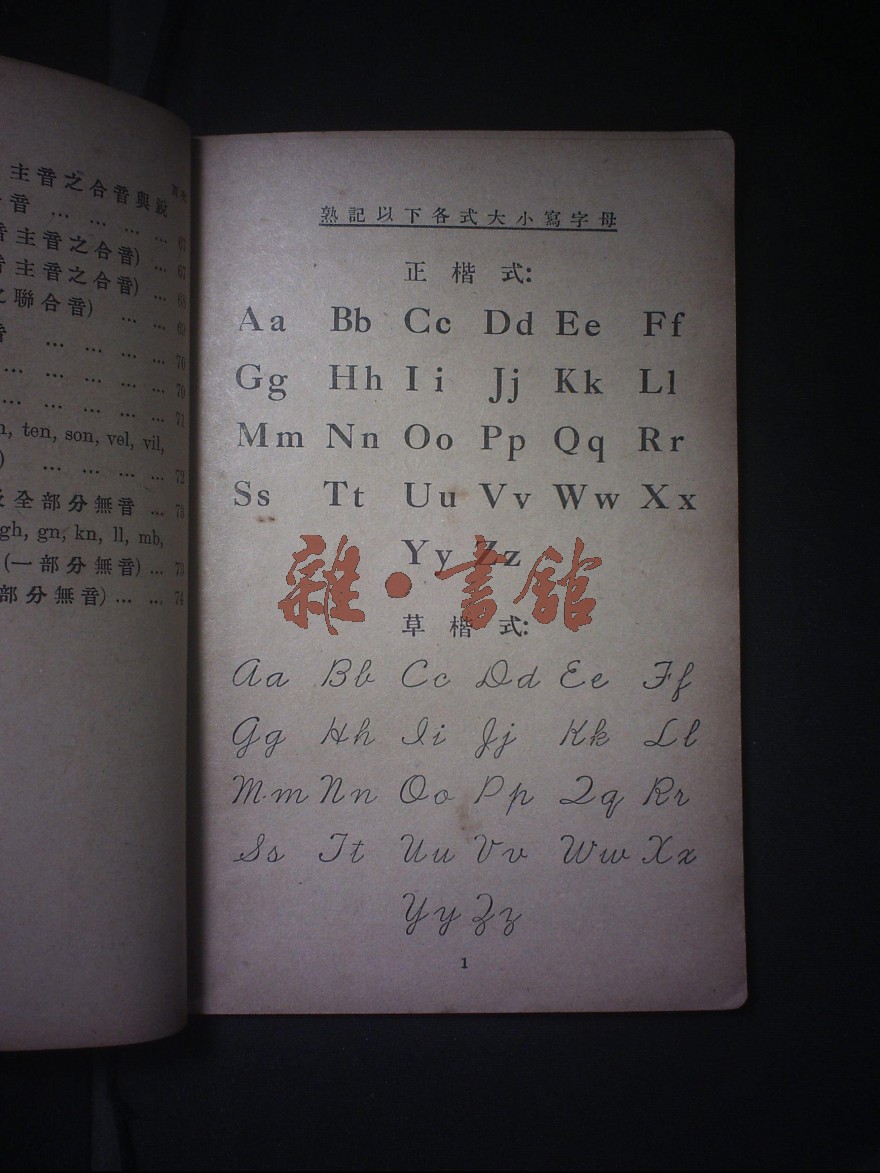 主音之合音與說
音 … … …
音主音之合音) … 67
音主音之合音) … 68
之聯合音) … … 69
… … … … 70
… … … … … 70
… … … … … 71
ten, son, vel, vil,
) … … … 72
全部分無音 … 73
gh, gn, kn, ll, mb,
(一部分無音) … 73
部分無音) … … 74
熟記以下各式大小寫字母
正楷式:
Aa Bb Cc Dd Ee Ff
Gg Hh Ii Jj Kk Ll
Mm Nn Oo Pp Qq Rr
Ss Tt Uu Vv Ww Xx
Yy Zz
雜·書館
草楷式:
Aa Bb Cc Dd Ee Ff
Gg Hh Ii Jj Kk Ll
Mm Nn Oo Pp Qq Rr
Ss Tt Uu Vv Ww Xx
Yy Zz
1